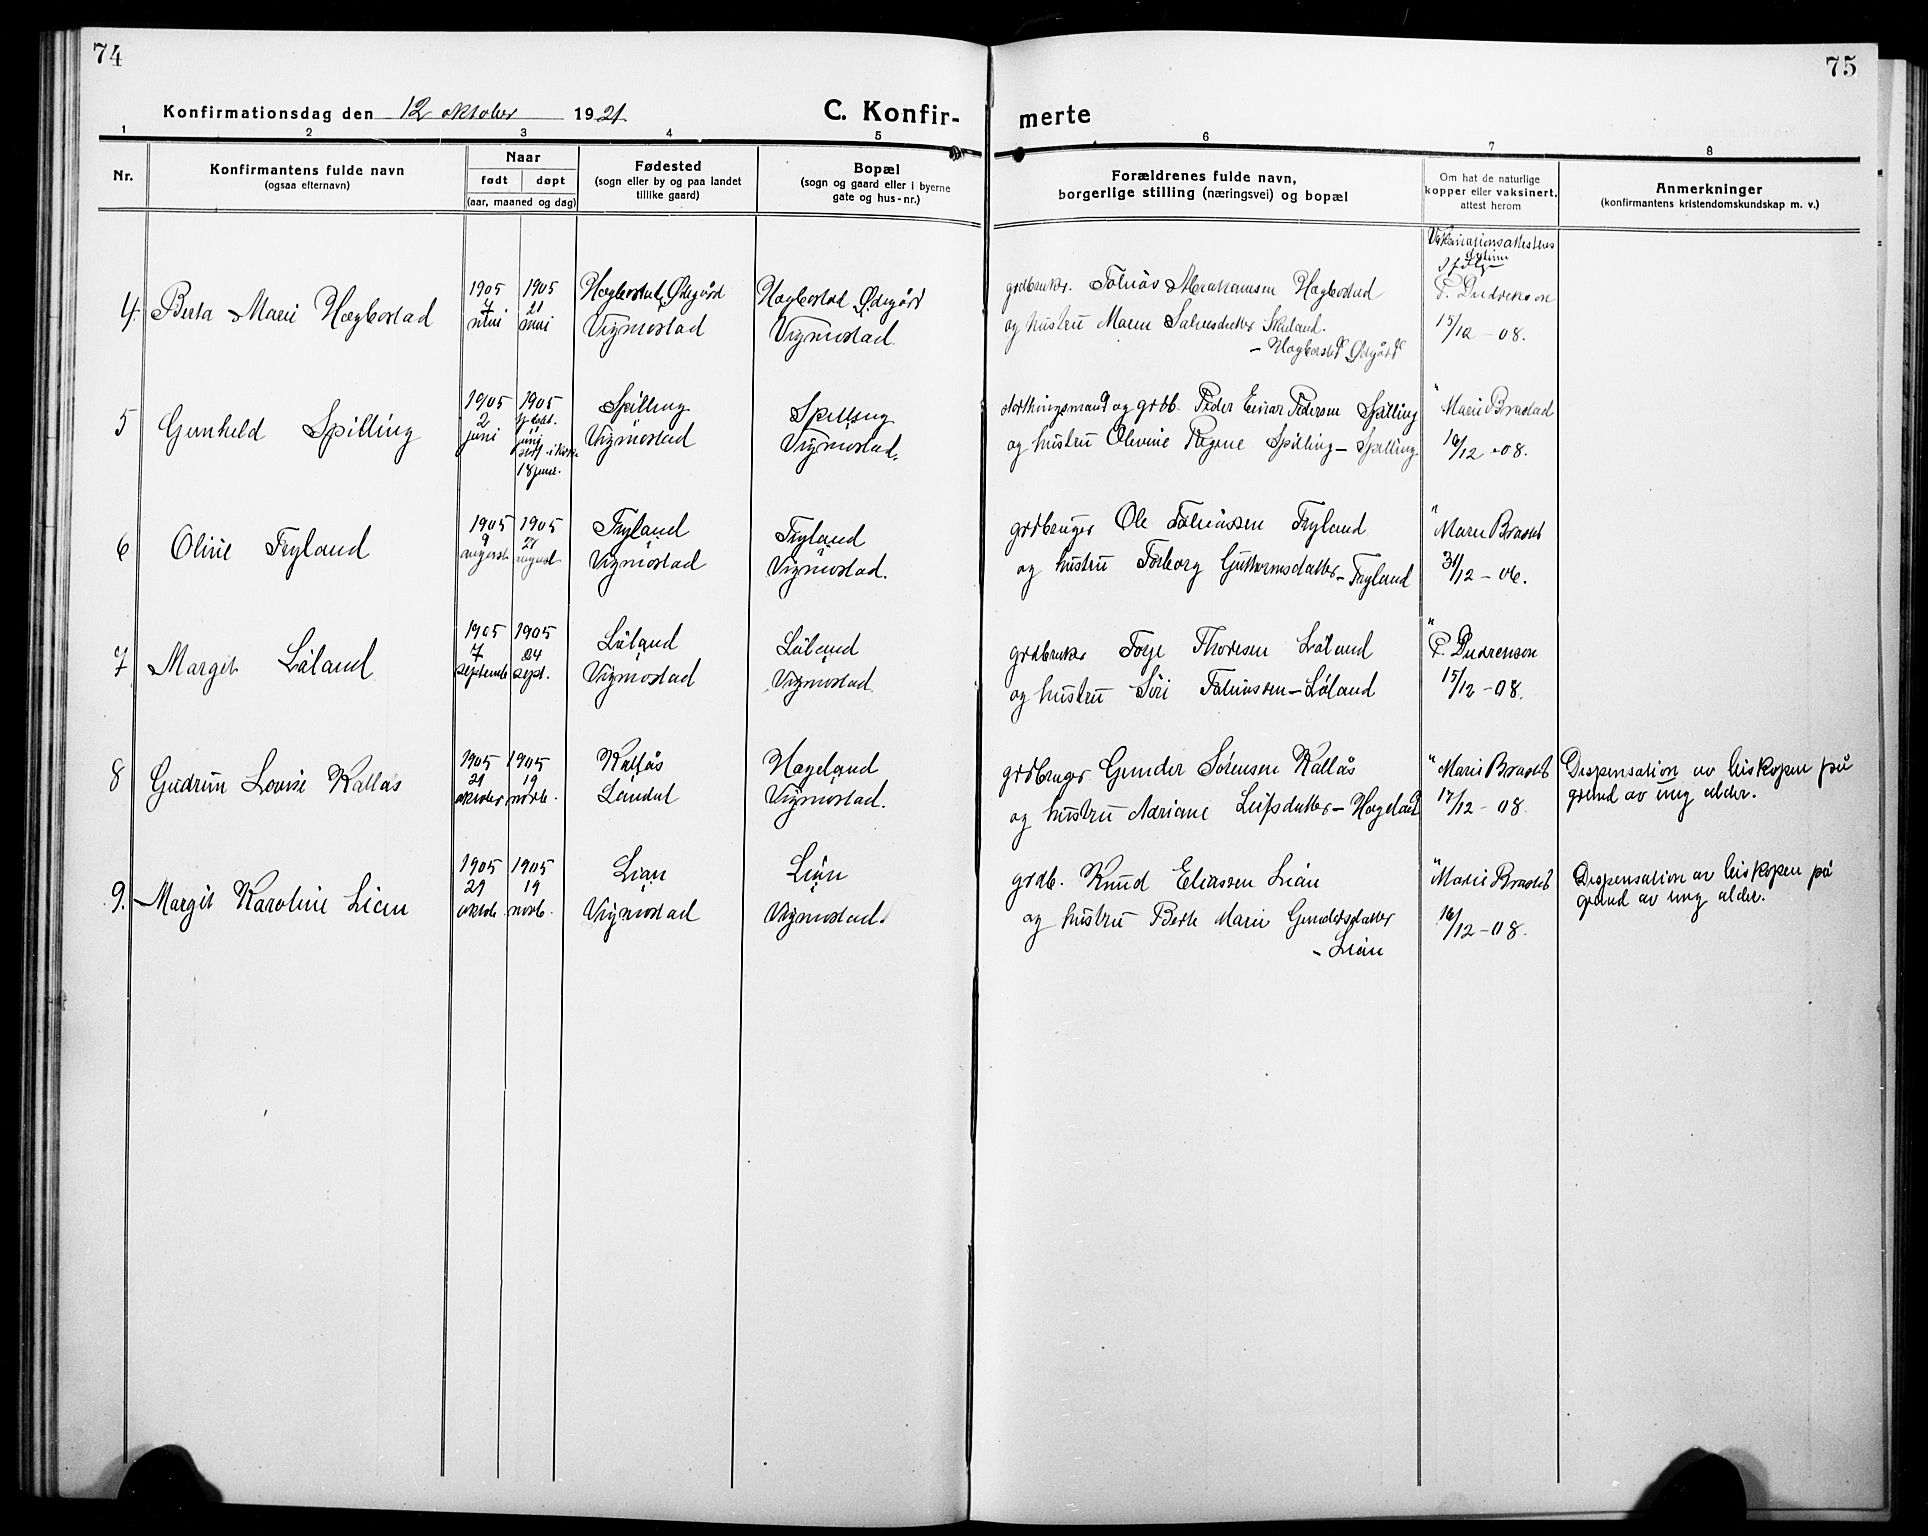 74
Konfirmationsdag den 12 oktober 1921
C. Konfir-
1 2 3 4 5
Nr.
Konfirmantens fulde navn
(ogsaa efternavn)
Naar
født døpt
(aar, maaned og dag)
Fødested
(sogn eller by og paa landet
tillike gaard)
Bopæl
(sogn og gaard eller i byerne
gate og hus-nr.)
4. Berta Marie Hægbostad
1905 7
1905 21
Hægbostad, Ødegård
Vigmostad
Hægbostad Ødegård
Vigmostad
5 Gunheld Spilling
1905 2 juni
1905
juni
18 juni.
Spilling
Vigmostad
Spilling
Vigmostad.
6 Olive Fryland
1905 9 august
1905 21 august
Fryland
Vigmostad
Fryland
Vigmostad.
7 Margit Løland
1905 7 septemb
1905 24 sept.
Løland
Vigmostad
Løland
Vigmostad.
8 Gudrun Lovise Kallås
1905 21 oktober
1905 19 novb.
Kallås
Laudal
Hageland
Vigmostad.
9. Margit Karoline Lian
1905 21 oktob
1905 19 novb.
Lian
Vigmostad
Lian
Vigmostad.
75
merte
6 7 8
Forældrenes fulde navn,
borgerlige stilling (næringsvei) og bopæl
Om hat de naturlige
kopper eller vaksinert,
attest herom
Anmerkninger
(konfirmantens kristendomskundskap m. v.)
grdbruker. Tobias Abrahamsen Hægbostad
og hustru Maren Salvesdatter Skuland.
– Hægbostad Ødegård
15/12 – 08.
stortingsmand og grdb. Peder Einar Pedersen Spilling
og hustru Olevine Regine Spilling – Spilling
" Marie Brastad
16/12 – 08.
grdbruger Ole Tobiassen Fryland
og hustru Torborg Guttormsdatter – Fryland
" Marie Brastad
31/12 – 06.
grdbruker Torje Thoresen Løland
og hustru Siri Tobiassen – Løland
15/12 – 08.
grdbruger Gunder Sørensen Kallås
og hustru Adriane Leifsdatter – Hageland
" Marie Brastad
17/12 – 08
Dispensation av biskopen på
grund av ung alder.
grdb. Knud Eliassen Lian
og hustru Berte Marie Gundersdatter
– Lian
" Marie Brastad
16/12 – 08.
Dispensation av biskopen på
grund av ung alder.